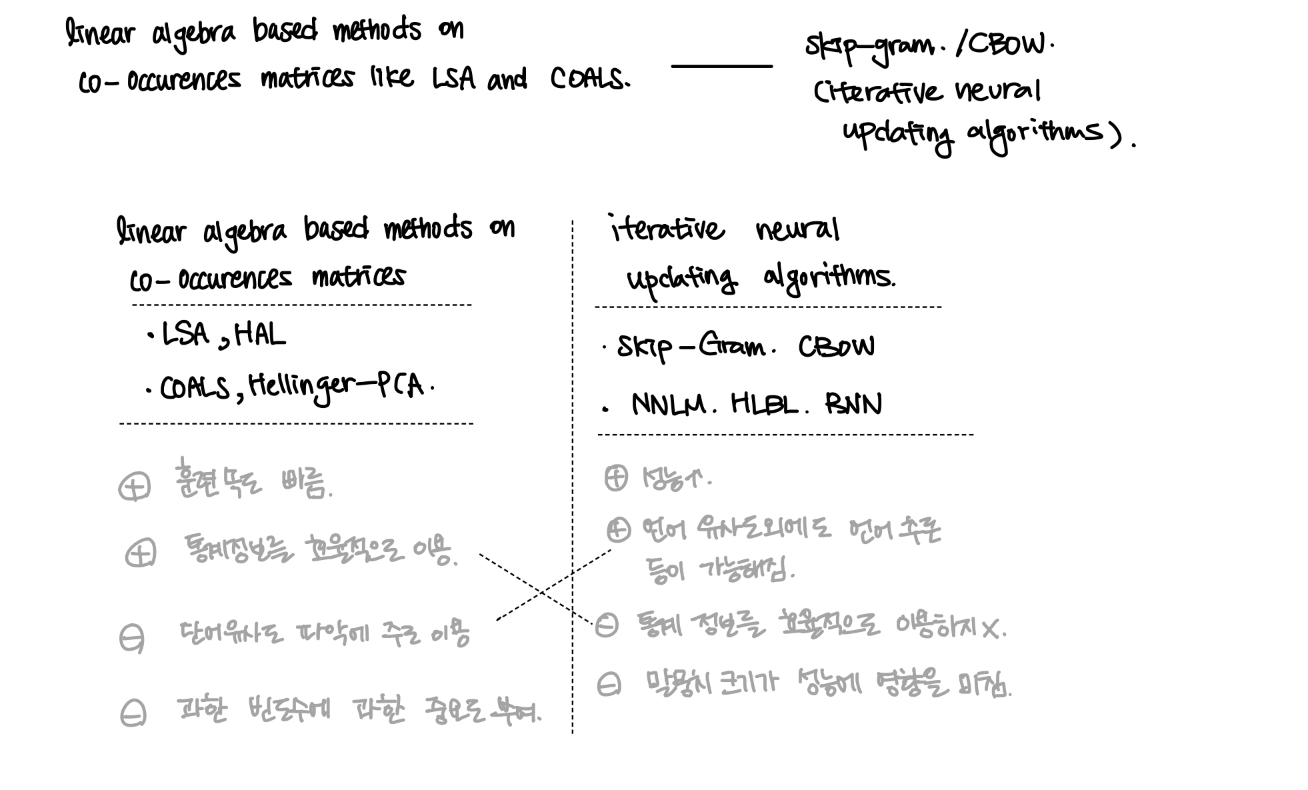 linear algebra based methods on
co-occurences matrices like LSA and COALS.
skip-gram. /CBOW.
(iterative neural
updating algorithms).
linear algebra based methods on
co-occurences matrices
• LSA, HAL
• COALS, Hellinger-PCA.
⊕ 훈련 속도 빠름.
⊕ 통계정보를 효율적으로 이용.
⊖ 단어유사도 파악에 주로 이용
⊖ 과한 빈도수에 과한 중요도 부여.
iterative neural
updating algorithms.
• Skip-Gram. CBOW
• NNLM. HLBL. RNN
⊕ 성능↑.
⊕ 언어 유사도외에도 언어 추론
등이 가능해짐.
⊖ 통계 정보를 효율적으로 이용하지 X.
⊖ 말뭉치 크기가 성능에 영향을 미침.